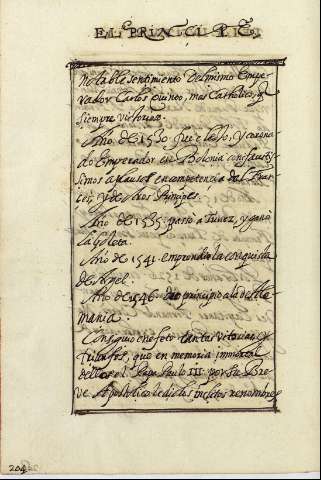 EL PRINCIPE.
Notable sentimiento Delmismo Empe-
rador Carlos Quinto, mas Catholico, y
siempre vitorioso.
Año de 1530 fue electo, y corona-
do Emperador en Bolonia con faustis-
simos aplausos en competencia de
y de otros Principes.
Año de 1535 passo a Tunez, y ganó
la Goleta.
Año de 1541 emprendio la conquista
de Argel.
Año de 1546 dio principio a la de Ale
mania.
Consiguio en efeto tantas vitorias, y
triunfos, que en memoria immortal
dellos el Papa Paulo III. por su Bre-
ve Apostolico le dio los inclitos renombres
204